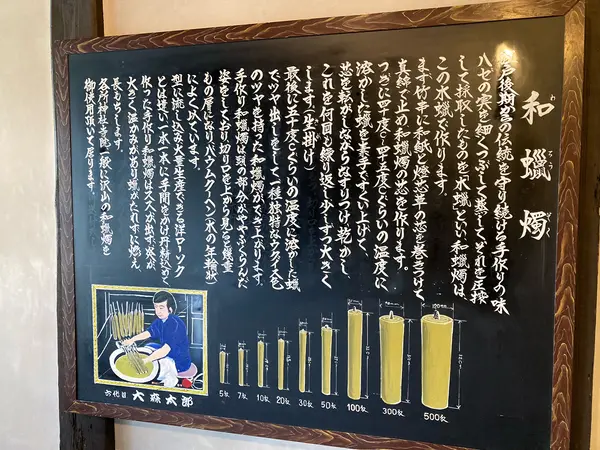 和蠟燭
わろうそく
江戸後期からの伝統を守り続ける手作りの味
ハゼの実を細くつぶして蒸して、それを圧搾
して採取したものを木蠟といい、和蠟燭は
この木蠟で作ります。
まず竹串に和紙と燈芯草の芯を巻きつけて
真綿で止め和蠟燭の芯を作ります。
つぎに四十度C〜四十五度Cぐらいの温度に
溶かした蠟を素手ですくい上げて、
芯を転がしながらなすりつけ、乾かし、
これを何回も繰り返して少しずつ大きく
します(生掛け)
最後に五十度Cぐらいの温度に溶かした蠟
でツヤ出しをして一種独特なウグイス色
のツヤを持った和蠟燭ができ上がります。
手作り和蠟燭は頭の部分がややふくらんだ
姿をしており切り口を上から見ると幾重
もの層になりバウムクーヘン(木の年輪状)
によく似ています。
型に流し込み大量生産できる洋ローソク
とは違い一本一本に手間をかけ丹精込めて
作った手作り和蠟燭はススが出ず、炎が
大きく温かみがあり蠟がたれずに燃え
長もちします。
各所神社寺院一般に沢山の和蠟燭を
御使用頂いて居ります。
六代目 大森太郎
5匁
7匁
10匁
20匁
30匁
50匁
100匁
300匁
500匁